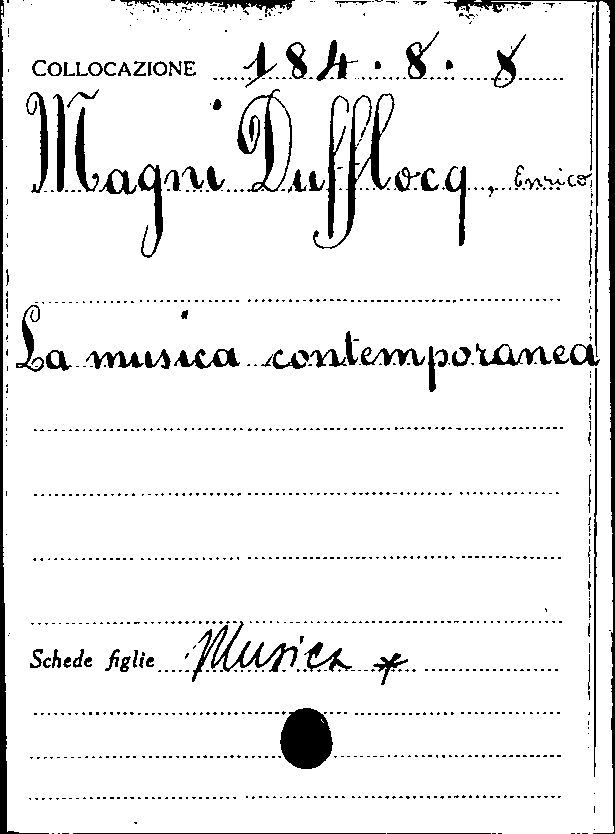 COLLOCAZIONE 184.8.8
Magni Dufflocq, Enrico
La musica contemporanea
Schede figlie Musica *